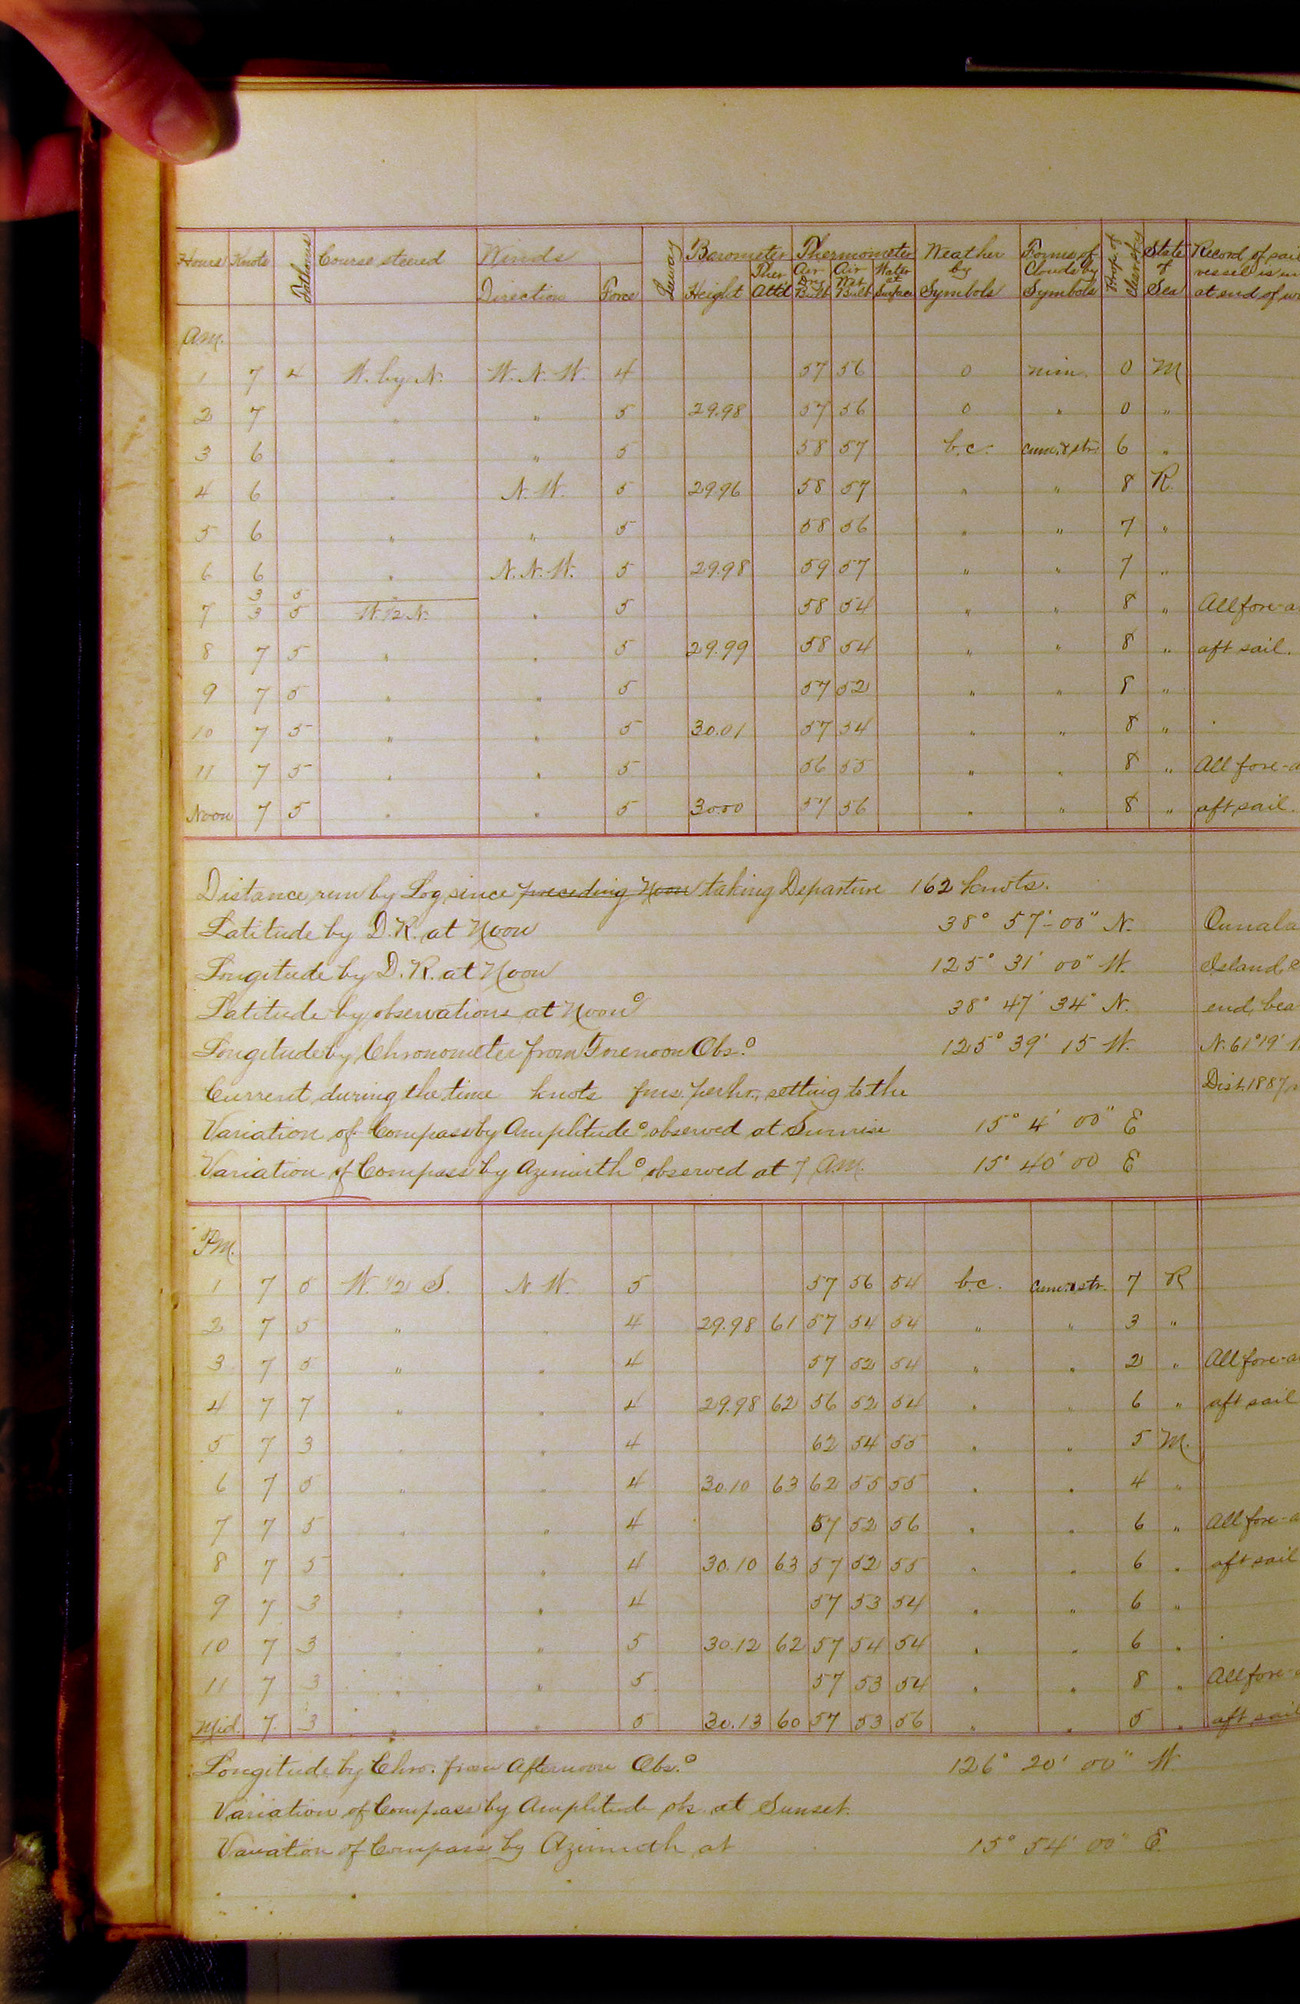 Hours Knots Fathoms Course steered Winds Leeway Barometer Thermometer Weather by Symbols Forms of Clouds by Symbols Prop. of Clear Sky State of Sea Record of sail
vessel is un
at end of w
Direction Force Height Ther. Att'd Air Dry Bulb Air Wet Bulb Water at Surface
A.M.
1 7 4 W. by N. W. N. W. 4 57 56 o nim. 0 M
2 7 " " 5 29.98 57 56 o " 0 "
3 6 " 5 58 57 b.c. cum. & str. 6 "
4 6 " N. W. 5 29.96 58 57 " " 8 R.
5 6 " " 5 58 56 " " 7 "
6 6 " N. N. W. 5 29.98 59 57 " " 7 "
3 5 "
7 3 5 W. 1/2 N. " 5 58 54 " " 8 " All fore-a
8 7 5 " " 5 29.99 58 54 " " 8 " aft sail.
9 7 5 " " 5 57 52 " " 8 "
10 7 5 " " 5 30.01 57 54 " " 8 "
11 7 5 " " 5 56 55 " " 8 " All fore-a
Noon 7 5 " " 5 30.00 57 56 " " 8 " aft sail.
Distance run by Log since preceding Noon taking Departure 162 knots.
Latitude by D. R. at Noon 38° 57' 00" N. Ounala
Longitude by D. R. at Noon 125° 31' 00" W. Island, e
Latitude by observations at Noon 38° 47' 34" N. end, bea
Longitude by Chronometer from Forenoon Obs. 125° 39' 15 W. N. 61° 19' W
Current during the time knots fms. per hr., setting to the Dist. 1887 m
Variation of Compass by Amplitude observed at Sunrise 15° 4' 00" E
Variation of Compass by Azimuth observed at 7 A.M. 15° 40' 00 E
P.M.
1 7 5 W. 1/2 S. N. W. 5 57 56 54 b.c. cum. & str. 7 R
2 7 5 " " 4 29.98 61 57 54 54 " " 3 "
3 7 5 " " 4 57 52 54 " " 2 " All fore-a
4 7 7 " " 4 29.98 62 56 52 54 " " 6 " aft sail
5 7 3 " " 4 62 54 55 " " 5 M.
6 7 5 " " 4 30.10 63 62 55 55 " " 4 "
7 7 5 " " 4 57 52 56 " " 6 " All fore-a
8 7 5 " " 4 30.10 63 57 52 55 " " 6 " aft sail
9 7 3 " " 4 57 53 54 " " 6 "
10 7 3 " " 5 30.12 62 57 54 54 " " 6 "
11 7 3 " " 5 57 53 54 " " 8 " All fore-a
Mid. 7 3 " " 5 30.13 60 57 53 56 " " 5 " aft sail
Longitude by Chro. from Afternoon Obs. 126° 20' 00" W
Variation of Compass by Amplitude obs. at Sunset.
Variation of Compass by Azimuth at 15° 54' 00" E.